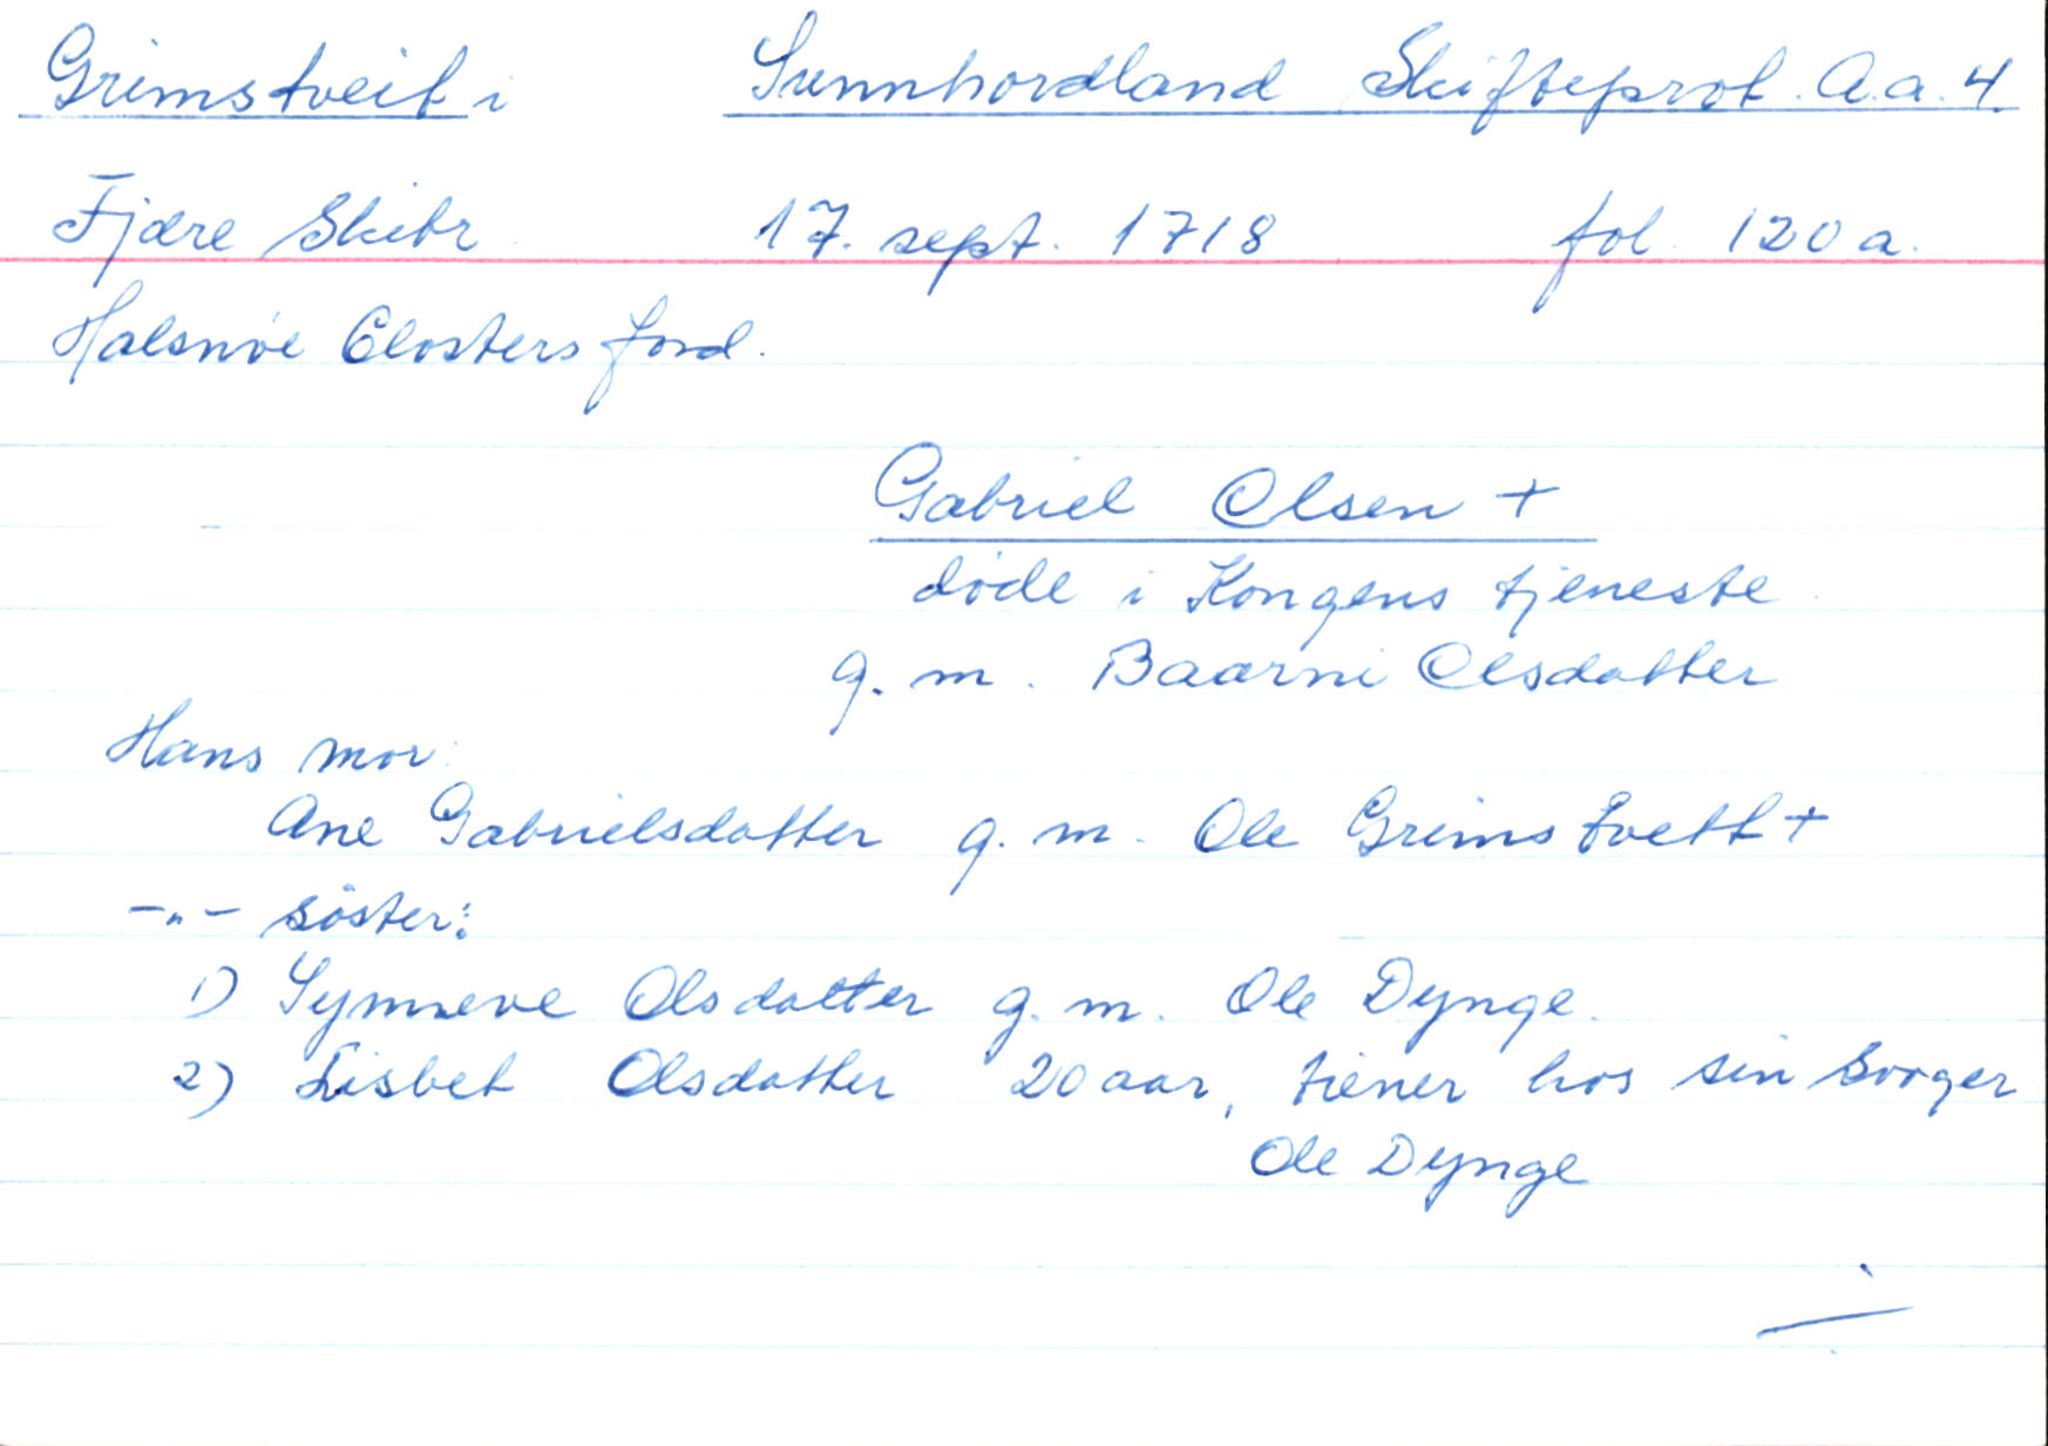 Grimstveit i Sunnhordland Skifteprot. A.a.4.
Fjære Skibr. 17. sept. 1718 fol. 120a.
Halsnöe Closters jord.
Gabriel Olsen +
döde i Kongens tjeneste.
g. m. Baarni Olsdatter
Hans mor:
Ane Gabrielsdatter g. m. Ole Grimstvett +
-"- söster:
1) Synneve Olsdatter g. m. Ole Dynge.
2) Lisbet Olsdatter 20 aar, tiener hos sin Svoger
Ole Dynge